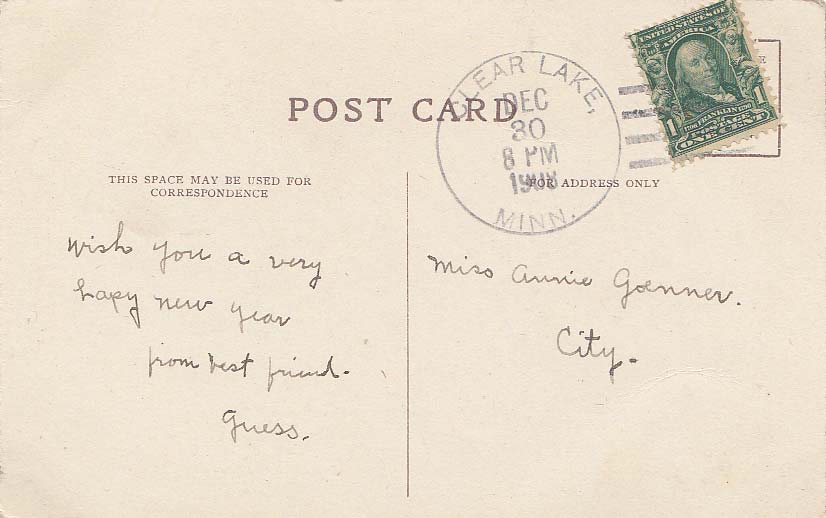 POST CARD
CLEAR LAKE,
DEC
30
8 PM
MINN.
UNITED STATES OF
AMERICA
FRANKLIN
1 1
POSTAGE
ONE CENT
THIS SPACE MAY BE USED FOR
CORRESPONDENCE
FOR ADDRESS ONLY
Wish you a very
hapy new year
from best friend.
Guess.
Miss Annie Goenner.
City.